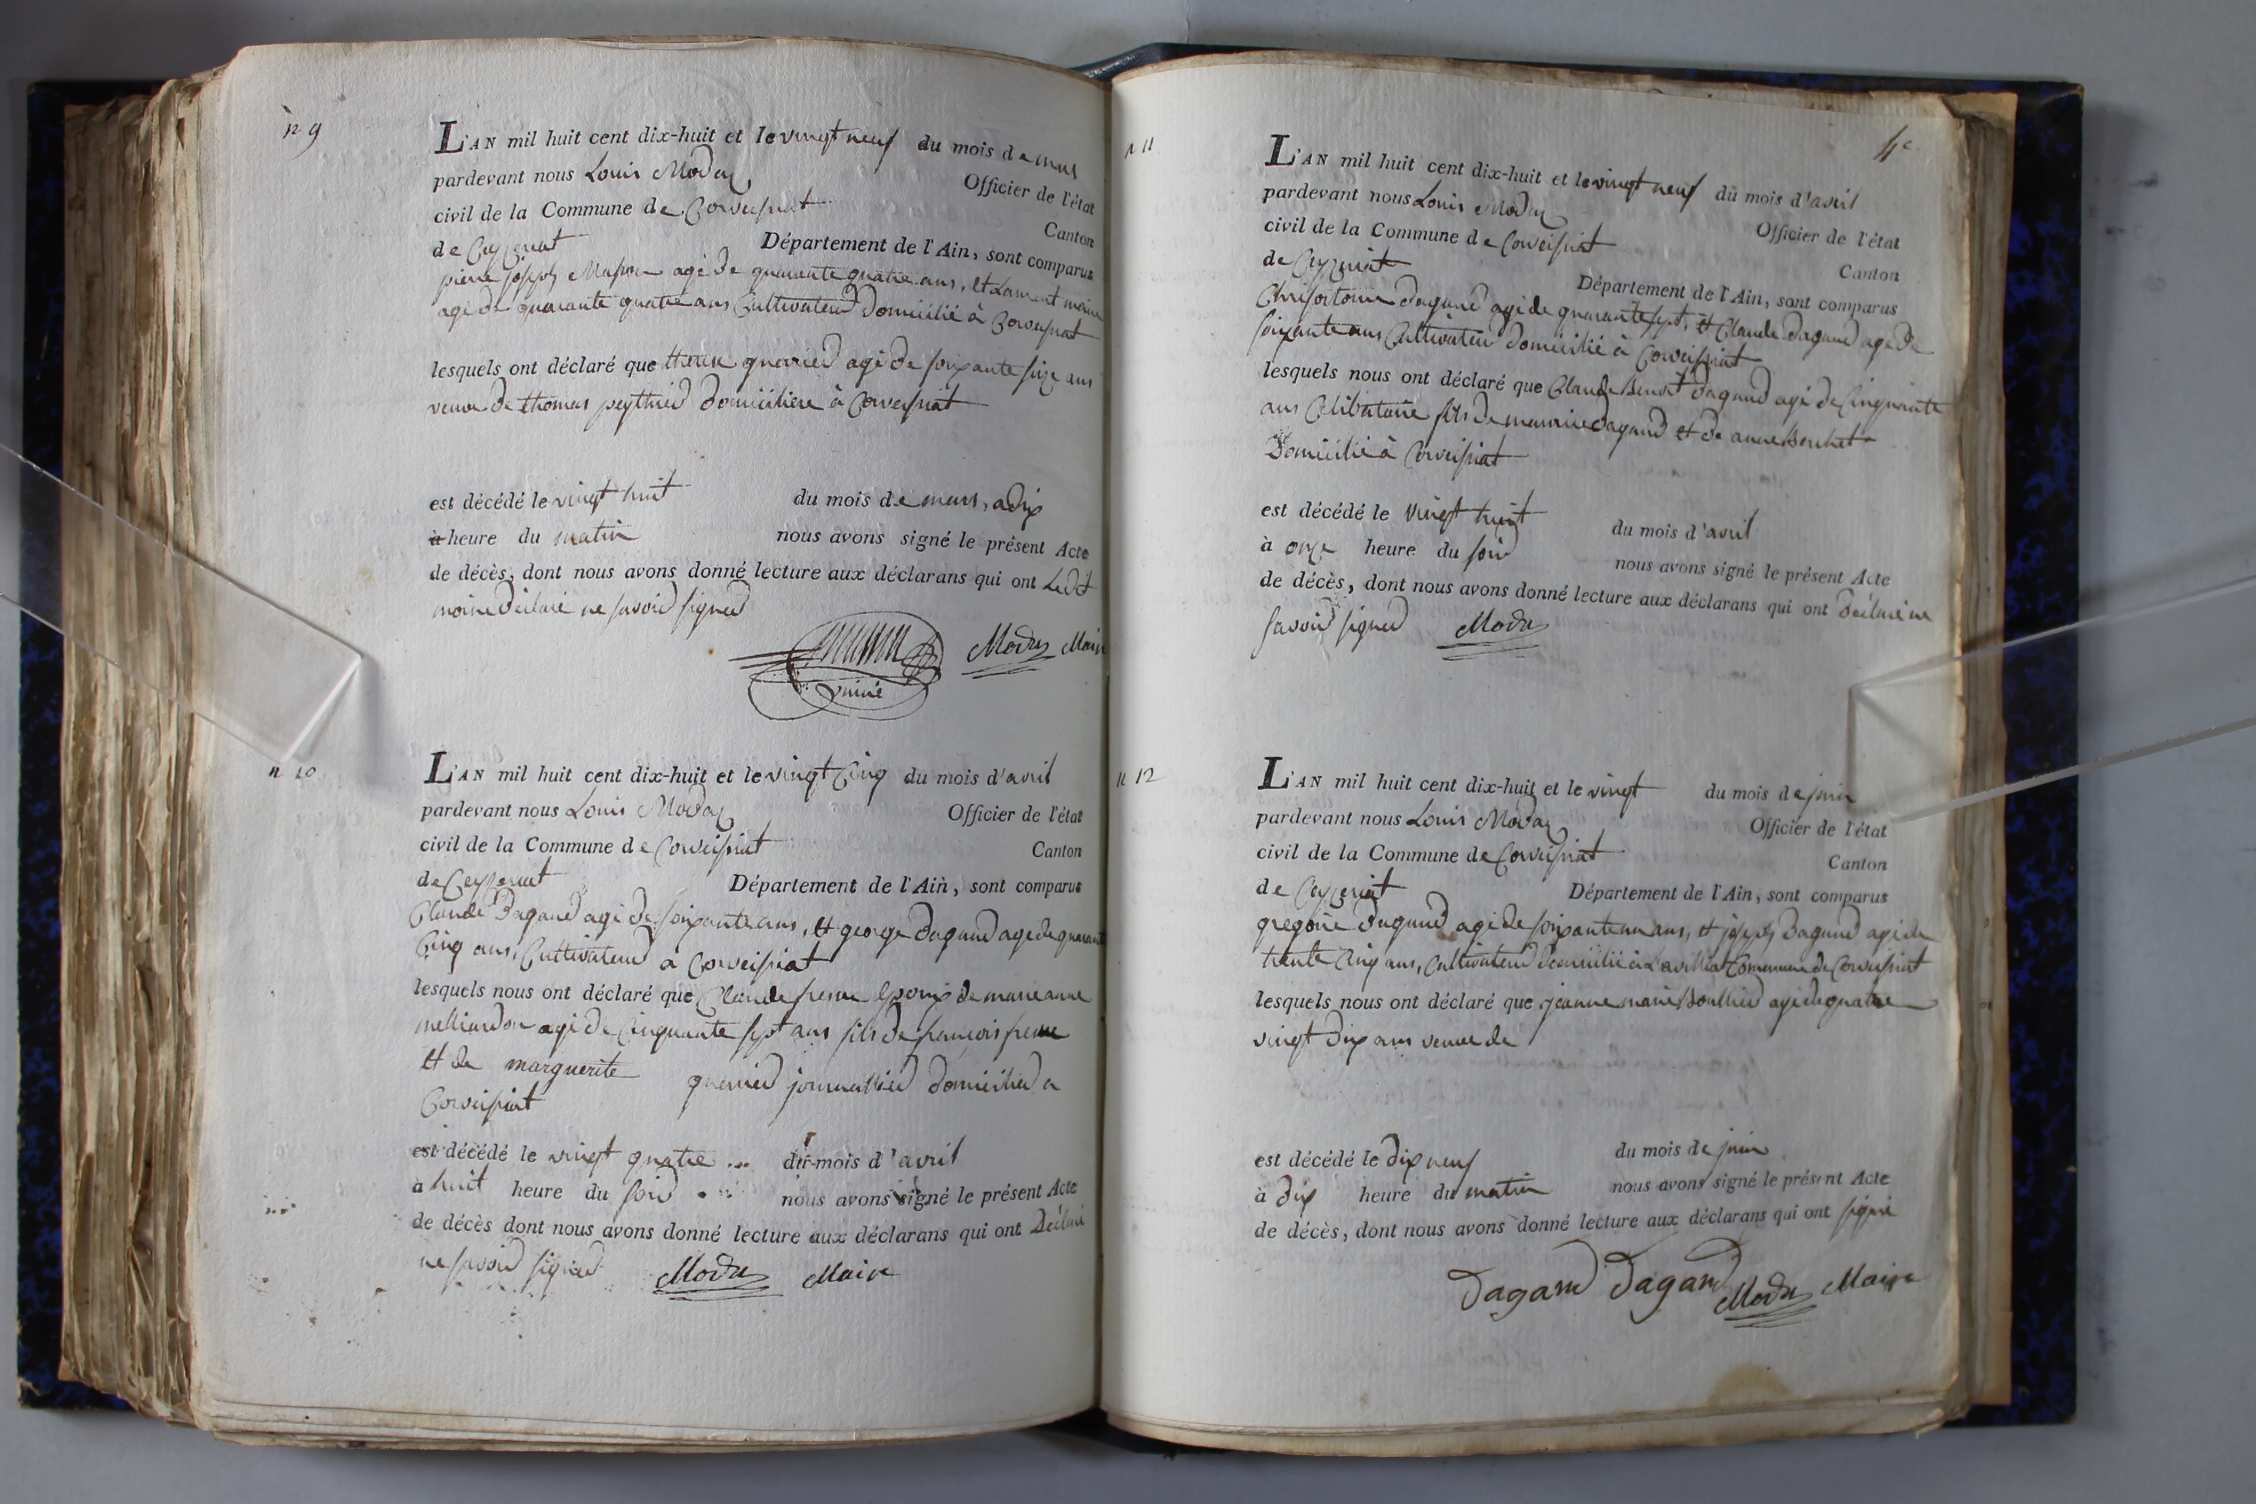 n 9
L'AN mil huit cent dix-huit et le vingt neuf du mois de mars
pardevant nous Louis Modas Officier de l'état
civil de la Commune de Corveissiat Canton
de Ceyzeriat Département de l'Ain, sont comparus
pierre joseph agé de quarante quatre ans, et Laurent moine
agé de quarante quatre ans Cultivateur domicilié à Corveissiat
lesquels ont déclaré que guerrier agé de soixante seize ans
veuve de thomas peythieu domicilière à Corveissiat
est décédé le vingt huit du mois de mars, a dix
à heure du matin nous avons signé le présent Acte
de décès, dont nous avons donné lecture aux déclarans qui ont Ledt
moine déclaré ne savoir signer
Modas Maire
n 10
L'AN mil huit cent dix-huit et le vingt Cinq du mois d'avril
pardevant nous Louis Modas Officier de l'état
civil de la Commune de Corveissiat Canton
de Ceyzeriat Département de l'Ain, sont comparus
Claude Dagand agé de soixante ans, et george Dagand agé de quarante
Cinq ans, Cultivateur à Corveissiat
lesquels nous ont déclaré que Claude fresne Epoux de marie anne
agé de Cinquante sept ans fils de françois fresne
et de marguerite guerrier journallier domicilier a
Corveissiat
est décédé le vingt quatre ... du mois d'avril
à huit heure du soir nous avons signé le présent Acte
de décès dont nous avons donné lecture aux déclarans qui ont Déclaré
ne savoir signer Modas Maire
4e
n 11
L'AN mil huit cent dix-huit et le vingt neuf du mois d'avril
pardevant nous Louis Modas Officier de l'état
civil de la Commune de Corveissiat Canton
de Ceyzeriat Département de l'Ain, sont comparus
Chrisostome Dagand agé de quarante sept, et Claude Dagand agé de
soixante ans Cultivateur domicilié à Corveissiat
lesquels nous ont déclaré que Claude Benoit Dagand agé de Cinquante
ans Célibataire fils de maurice Dagand et de anne
Domicilié à Corveissiat
est décédé le vingt huit du mois d'avril
à onze heure du soir nous avons signé le présent Acte
de décès, dont nous avons donné lecture aux déclarans qui ont Déclaré ne
savoir signer Modas
n 12
L'AN mil huit cent dix-huit et le vingt du mois de juin
pardevant nous Louis Modas Officier de l'état
civil de la Commune de Corveissiat Canton
de Ceyzeriat Département de l'Ain, sont comparus
gregoire Dagand agé de soixante un ans, et joseph Dagand agé de
trente Cinq ans, Cultivateur domicilié à Lavilliat Commune de Corveissiat
lesquels nous ont déclaré que jeanne marie Boullier agé de quatre
vingt dix ans veuve de
est décédé le dix neuf du mois de juin
à dix heure du matin nous avons signé le présent Acte
de décès, dont nous avons donné lecture aux déclarans qui ont signé
Dagand Dagand Modas Maire